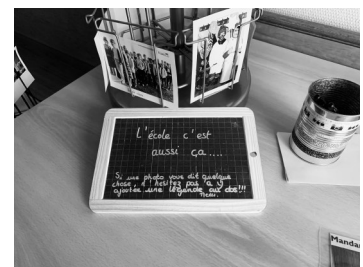 L'école c'est
aussi ça....
Si une photo vous dit quelque
chose, n'hésitez pas à y
ajouter une légende au dos!!!
Merci.
Manda